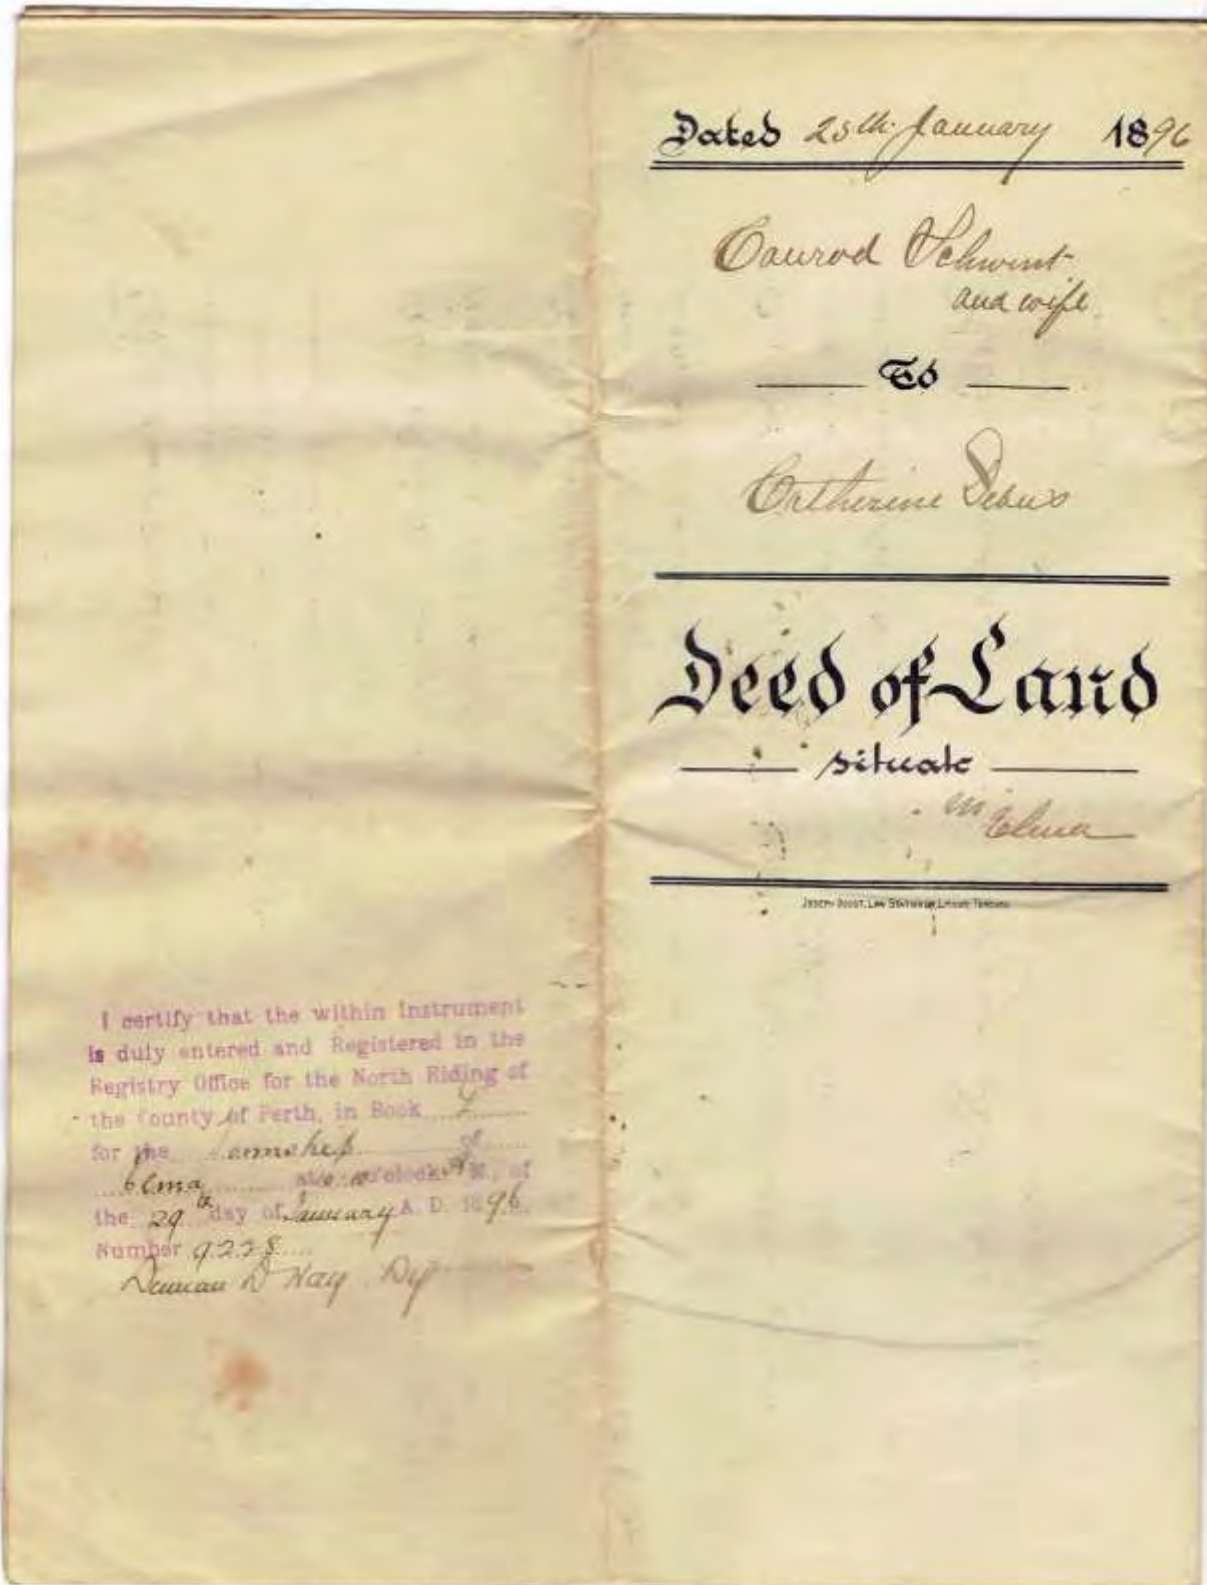 Dated 25th January 1896
Conrod Schwint
and wife
To
Catherine Debus
Deed of Land
situate
in Elma
JOSEPH DOUST, LAW STATIONER, TORONTO
I certify that the within Instrument
is duly entered and Registered in the
Registry Office for the North Riding of
the County of Perth, in Book
for the Township of
Elma at o'clock A M., of
the 29th day of January A. D. 1896.
Number 9228
Duncan D Hay Dy